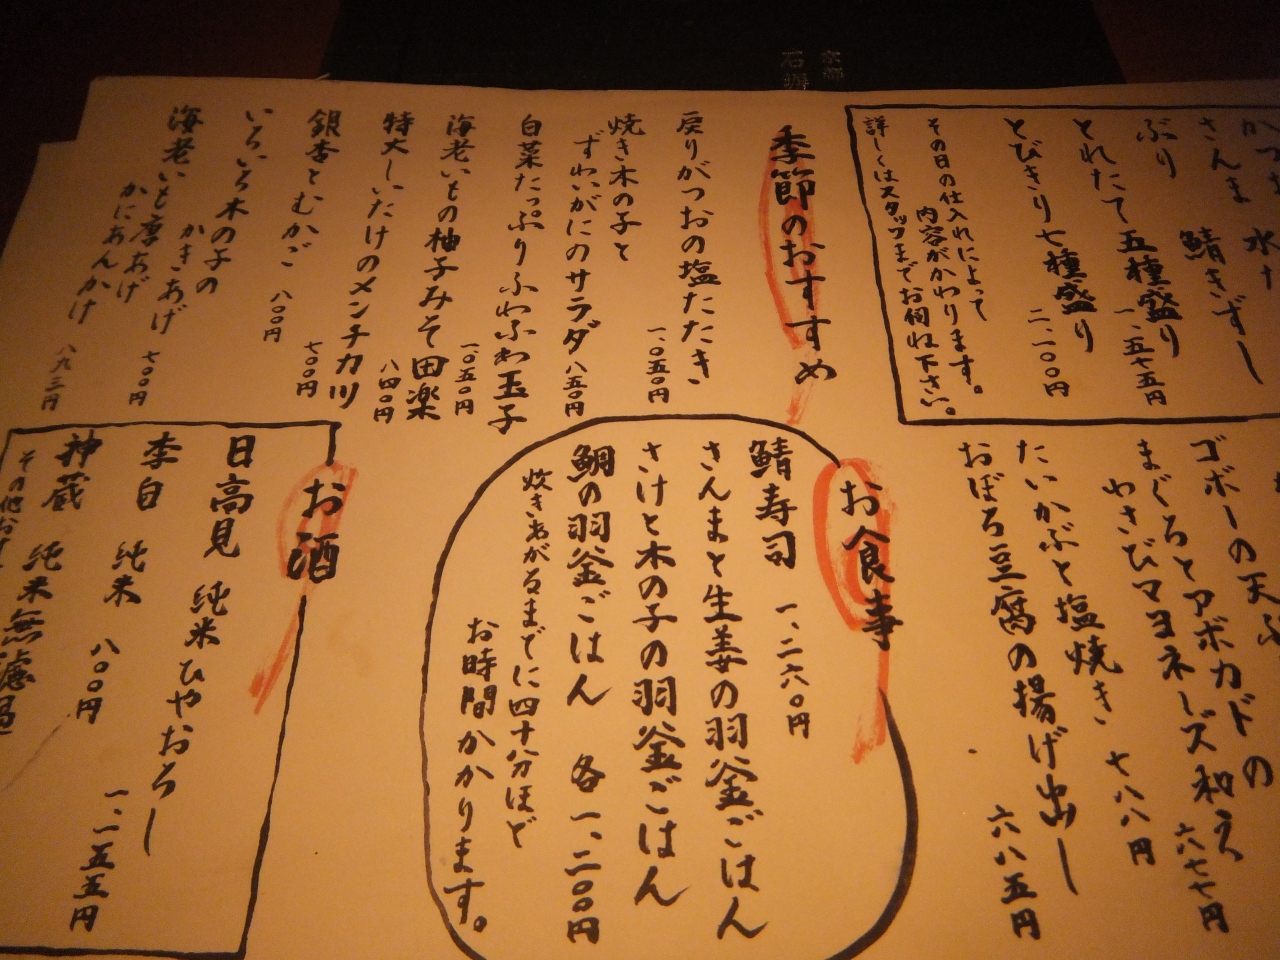 京都
石塀
さんま 鯖きずし
ぶり
とれたて五種盛り
一、五七五円
とびきり七種盛り
二、一〇〇円
その日の仕入れによって
内容がかわります。
詳しくはスタッフまでお伺い下さい。
季節のおすすめ
戻りがつおの塩たたき
一、〇五〇円
焼き木の子と
ずわいがにのサラダ 八五〇円
白菜たっぷりふわふわ玉子
海老いもの柚子みそ田楽
一、〇五〇円
特大しいたけのメンチカツ
八四〇円
銀杏とむかご 七〇〇円
八〇〇円
いろいろ木の子の
かきあげ 七〇〇円
海老いも唐あげ
かにあんかけ
八九三円
ゴボーの天ぷ
まぐろとアボカドの
わさびマヨネーズ和え
六七七円
たいかぶと塩焼き 七八八円
おぼろ豆腐の揚げ出し
六八五円
お食事
鯖寿司 一、二六〇円
さんまと生姜の羽釜ごはん
さけと木の子の羽釜ごはん
鯛の羽釜ごはん 各一、二〇〇円
炊きあがるまでに四十分ほど
お時間かかります。
お酒
日高見 純米ひやおろし
一、一五五円
李白 純米 八〇〇円
神蔵 純米無濾過
その他お